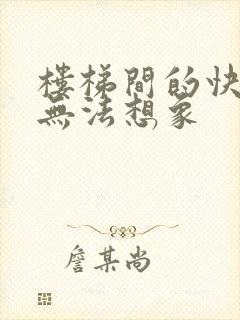 樓梯間的快
無法想象
詹某尚